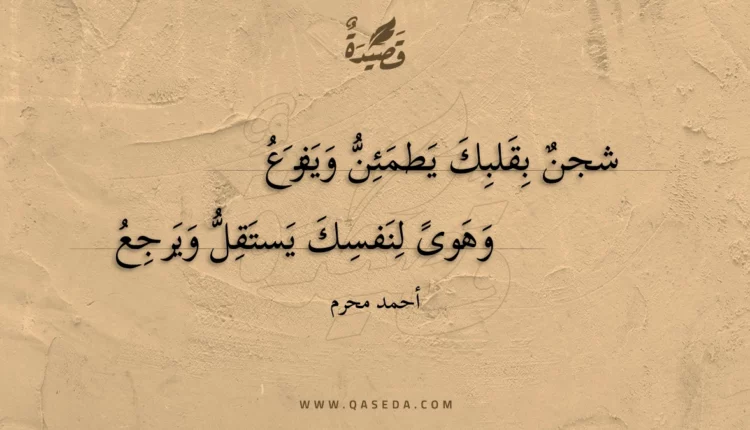 قَصِيْدَةٌ
شجنٌ بِقَلبِكَ يَطمَئِنُّ وَيَفزَعُ
وَهَوىً لِنَفسِكَ يَستَقِلُّ وَيَرجِعُ
أحمد محرم
WWW.QASEDA.COM